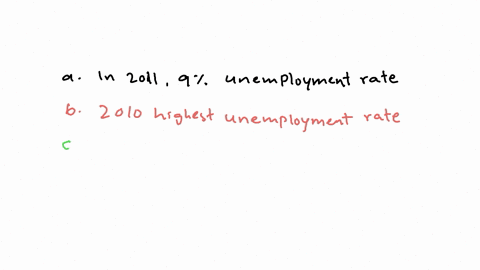 a. In 2011, 9% unemployment rate
b. 2010 highest unemployment rate
c